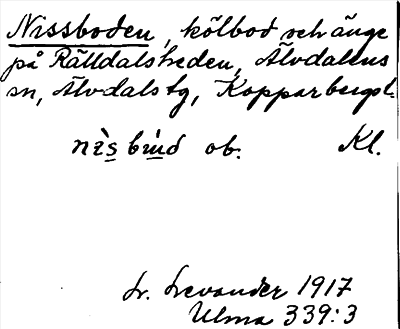 Nissboden, kölbod och änge
på Rälldalsheden, Älvdalens
sn, Älvdals tg, Kopparbergs l.
nìs bùd ob. Kl.
Lr. Levander 1917
Ulma 339:3